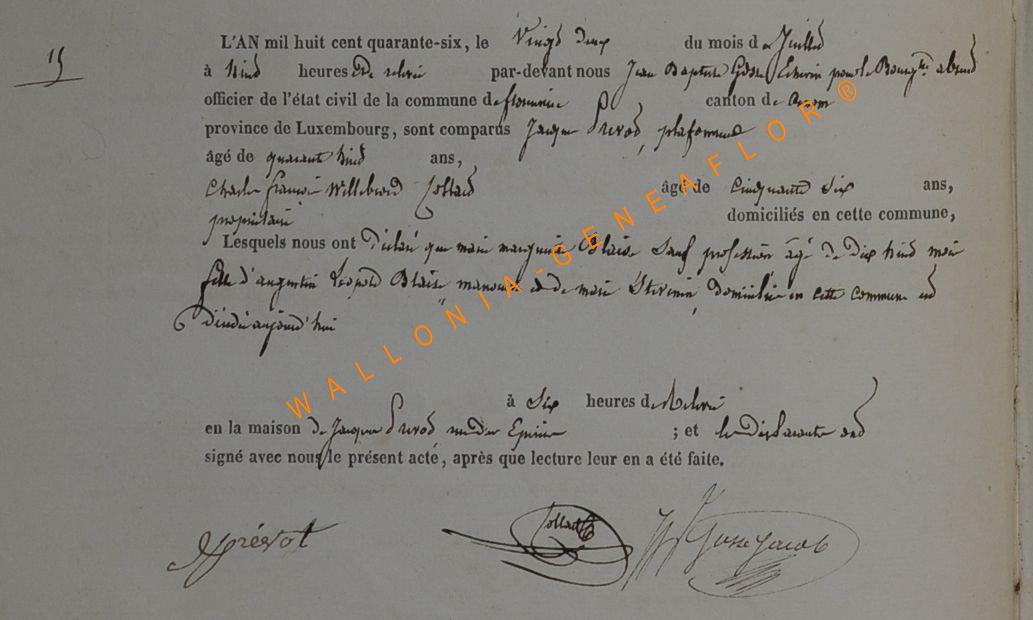 15
L'AN mil huit cent quarante-six, le Vingt deux du mois de Juillet
à huit heures de relevée par-devant nous Jean Baptiste Gosse Echevin pour le Bourgtre absent
officier de l'état civil de la commune de florenville canton de
province de Luxembourg, sont comparus Jacques Prevot, plafonneur
âgé de quarante huit ans,
Charles françois Willebrord Collard âgé de Cinquante six ans,
propriétaire domiciliés en cette commune,
Lesquels nous ont déclaré que marie marguerite Blaise Sans profession âgé de dix huit mois
fille d'augustin Léopold Blaise manoeuvre et de marie domiciliés en cette commune est
décédé aujourd'hui
à Six heures de Relevée
en la maison de Jacques Prevot, rue des ; et les déclarants ont
signé avec nous le présent acte, après que lecture leur en a été faite.
JPrévot Collard Gosse Jacob
WALLONIA-GENEAFLOR®